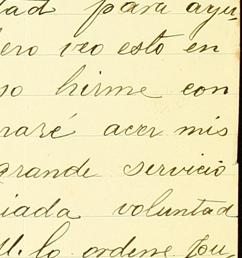 tad para ayu-
ero veo esto en
so hirme con
raré acer mis
grande servicio
iada voluntad
U. lo ordene pu-